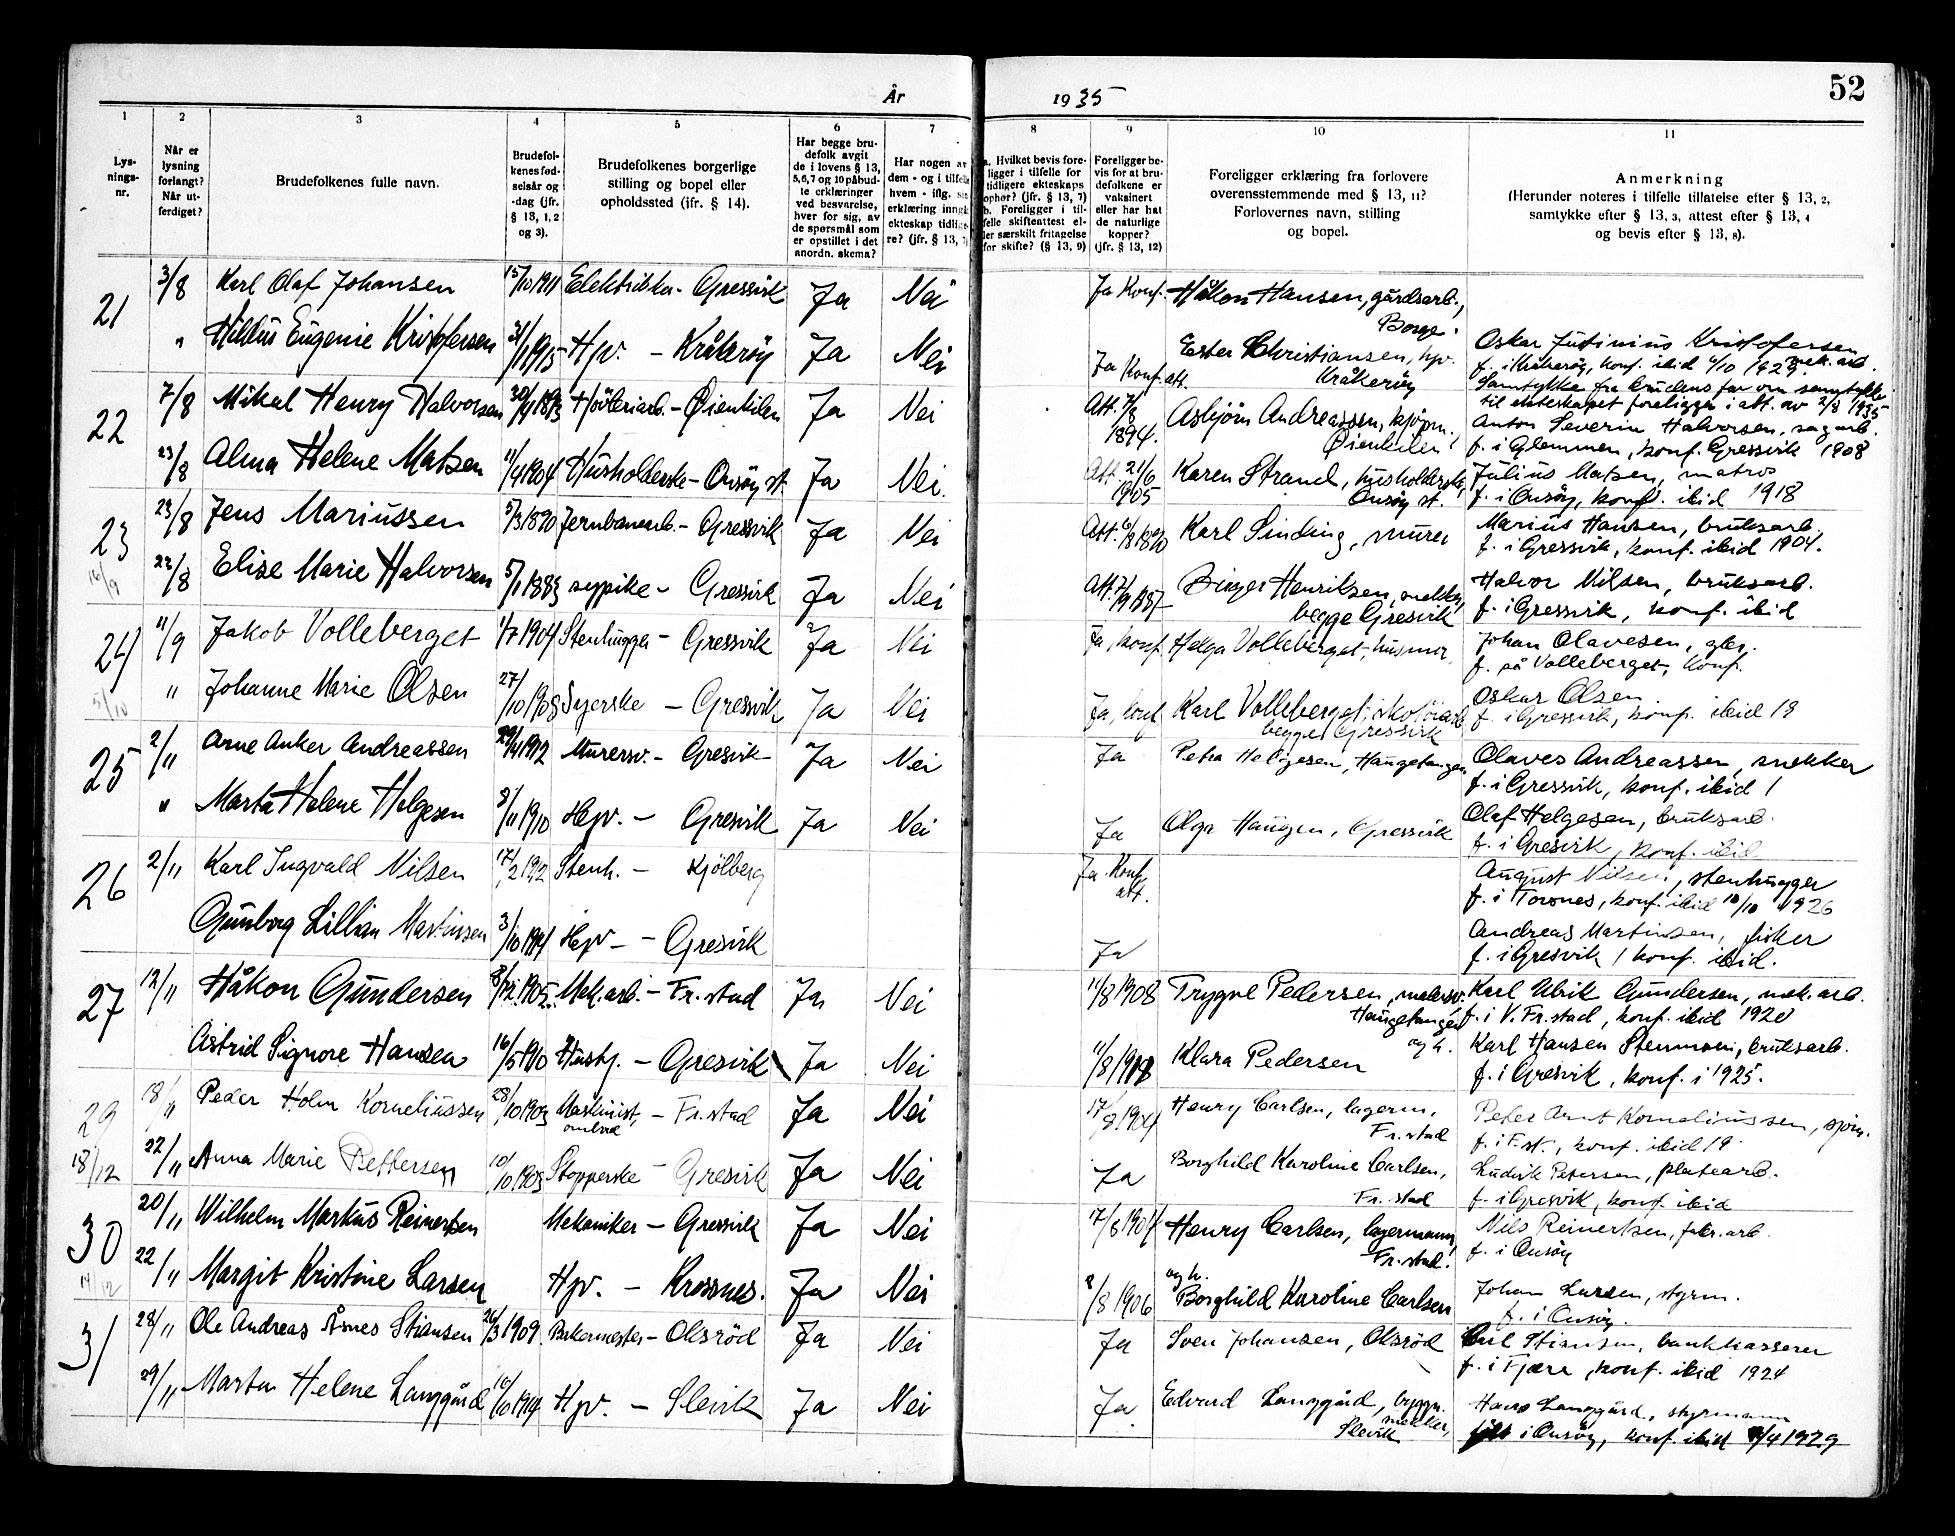 År 1935
52
1 2 3 4 5 6 7 8 9 10 11
Lys-
nings-
nr.
Når er
lysning
forlangt?
Når ut-
ferdiget?
Brudefolkenes fulle navn.
Brudefol-
kenes fød-
selsår og
-dag (jfr.
§ 13, 1, 2
og 3).
Brudefolkenes borgerlige
stilling og bopel eller
opholdssted (jfr. § 14).
Har begge bru-
defolk avgit
de i lovens § 13,
5,6,7 og 10 påbud-
te erklæringer
ved besvarelse,
hver for sig, av
de spørsmål som
er opstillet i det
anordn. skema?
Har nogen av
dem - og i tilfelle
hvem - iflg. sin
erklæring inngått
ekteskap tidlig-
re? (jfr. § 13,
a. Hvilket bevis fore-
ligger i tilfelle for
tidligere ekteskaps
ophør? (jfr. § 13, 7)
b. Foreligger i til-
felle skifteattest el-
ler særskilt fritagelse
for skifte? (§ 13, 9)
Foreligger be-
vis for at bru-
defolkene er
vaksinert
eller har hat
de naturlige
kopper?
(jfr. § 13, 12)
Foreligger erklæring fra forlovere
overensstemmende med § 13, 11?
Forlovernes navn, stilling
og bopel.
Anmerkning
(Herunder noteres i tilfelle tillatelse efter § 13, 2,
samtykke efter § 13, 3, attest efter § 13, 4
og bevis efter § 13, 8).
21 3/8 Karl Olaf Johansen 15/10 1911 Elektriker - Gressvik Ja Nei Ja Konf. Håkon Hansen, gårdsarb.,
Borge.
" Eugenie Kristofersen 31/1 1915 Hpv. - Kråkerøy Ja Nei Ja Konf. att. Ester Christiansen, hpv.
Kråkerøy
Oskar Justinius Kristofersen
mek. arb.
f. i Kråkerøy, konf. ibid 6/10 1929
Samtykke fra brudens far om samtykke
til ekteskapet foreligger i att. av 2/8 1935
22 7/8 Mikal Henry Halvorsen Høvleriarb. - Øienkilen Ja Nei Att. 7/8
1894. Asbjørn Andreassen, kjøpm.,
Øienkilen
Anton Severin Halvorsen, sagarb.
f. i Glemmen, konf. Gressvik 1908
23/8 Alma Helene Matsen 11/4 1904 Husholderske - Onsøy st. Ja Nei. Att. 21/6
1905 Karen Strand, husholderske,
Onsøy st.
Julius Matsen, matros
f. i Onsøy, konf. ibid 1918
23 23/8 Jens Mariussen 5/3 1890 Jernbanearb. - Gressvik Ja Nei Att. Karl Sinding, murer
Marius Hansen, bruksarb.
f. i Gressvik, konf. ibid 1904.
16/9
22/8 Elise Marie Halvorsen 5/1 1883 sypike - Gressvik Ja Nei Att. Birger Henriksen, snekker,
begge Gresvik
Halvor Nilsen, bruksarb.
f. i Gressvik, konf. ibid
24 11/9 Jakob Volleberget 1/7 1904 Stenhugger - Gressvik Ja Nei Ja, konf. Helga Volleberget, husmor,
Johan Olavesen, gbr.
f. på Volleberget, konf.
5/10
" Johanne Marie Olsen 27/10 1908 Syerske - Gressvik Ja Nei Ja, konf. Karl Volleberget, skotøiarb.
begge Gressvik
Oskar Olsen
f. i Gressvik, konf. ibid 19
25 2/11 Arne Anker Andreassen 29/4 1912 Murersv. - Gresvik Ja Nei Ja Petra Helgesen, Haugetangen
Olaves Andreassen, snekker
f. i Gressvik, konf. ibid 1
" Marta Helene Helgesen 8/11 1910 Hpv. - Gresvik Ja Nei Ja Olga Haugen, Gressvik
Olaf Helgesen, bruksarb.
f. i Gresvik, konf. ibid
26 2/11 Karl Ingvald Nilsen 17/2 1912 Stenh. - Kjölberg Ja Konf.
att.
August Nilsen, stenhugger
f. i Torsnes, konf. ibid 10/10 1926
Gunborg Lillian Martinsen 3/10 1914 Hpv - Gresvik Ja
Andreas Martinsen, fisker
f. i Gresvik, konf. ibid.
27 12/11 Håkon Gundersen 8/12 1905. Mek. arb. - Fr.stad Ja Nei 11/8 1908 Trygve Pedersen, malersv.
Haugetangen
og h.
Karl Ulrik Gundersen, mek. arb.
f. i V. Fr.stad, konf. ibid 1920
Astrid Signore Hansen 16/5 1910 Husbj. - Gresvik Ja Nei 11/8 1918 Klara Pedersen
Karl Hansen Stenmoen, bruksarb.
f. i Gresvik, konf. i 1925.
29 18/11 Peder Holm Korneliussen 28/10 1903 Maskinist, - Fr.stad
ombord Ja Nei 17/8 1904 Henry Carlsen, lagerm.,
Fr.stad
Peter Arnt Korneliussen, sjøm.
f. i F.st., konf. ibid 19
18/12
22/11 Anna Marie Pettersen 10/10 1903 Stopperske - Gresvik Ja Nei Ja Borghild Karoline Carlsen,
Fr.stad
Ludvik Petersen, platearb.
f. i Gresvik, konf. ibid
30 20/11 Wilhelm Markus Reinertsen Mekaniker - Gressvik Ja Nei 17/8 1904 Henry Carlsen, lagermann,
Fr.stad.
Nils Reinertsen, fabr. arb.
f. i Onsøy
14/12
22/11 Margit Kristine Larsen Hpv. - Krossnes. Ja Nei 8/8 1906 og h.
Borghild Karoline Carlsen
Johan Larsen, styrm.
f. i Onsøy.
31 28/11 Ole Andreas Åsnes Stiansen 26/3 1909. Bakermester - Oksrød Ja Nei Ja Sven Johansen, Oksrød
Stiansen, bankkasserer
f. i Fjære, konf. ibid 1924
29/11 Marta Helene Langgård 16/10 1914 Hpv. - Slevik Ja Nei Ja. Edvard Langgård, byggn.
snekker,
Slevik
Hans Langgård, styrmann
i Onsøy, konf. ibid 1929